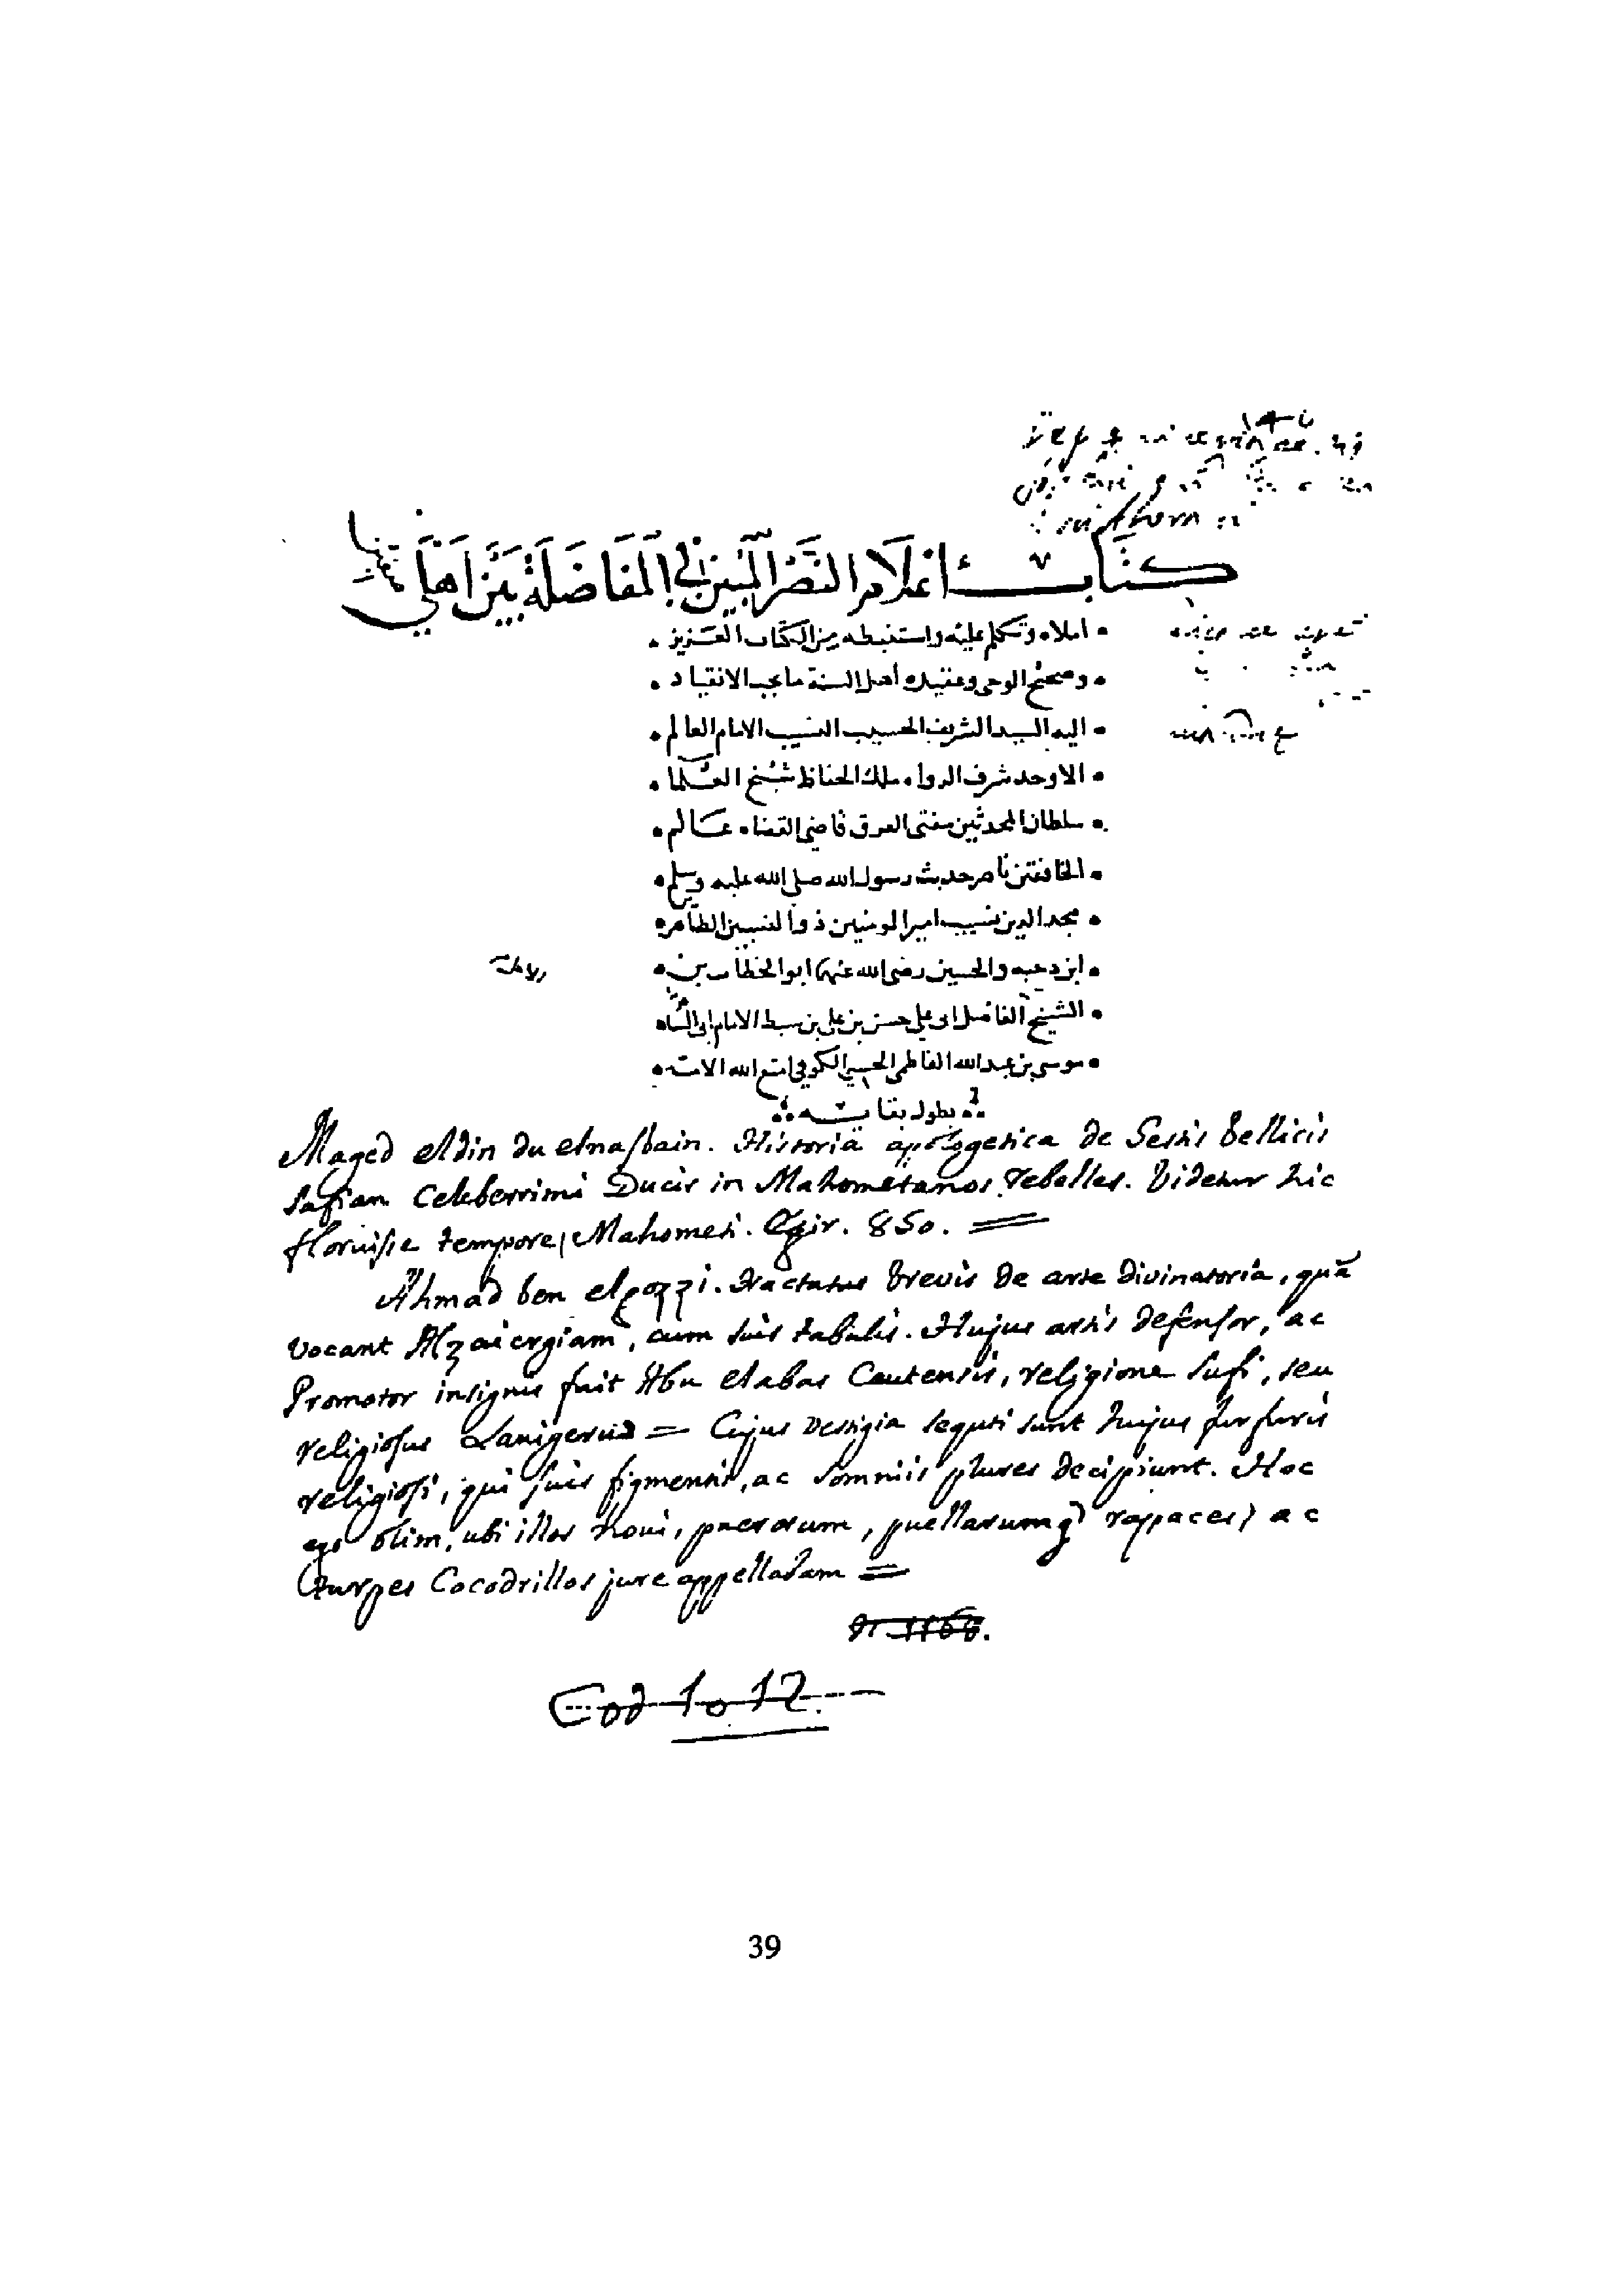 كتاب اعلام النصر المبين في المفاضلة بين اهلي صفين
املاه وتكلم عليه واستنبطه من الكتاب العزيز
وصحيح الوحي وعقيدة أهل السنة ما يجب الانقياد
اليه السيد الشريف الحسيب النسيب الامام العالم
الاوحد شرف الرواه ملك الحفاظ شيخ العلما
سلطان المحدثين مفتي الفرق قاضي القضاه عالم
الخافقين ناصر حديث رسول الله صلى الله عليه وسلم
مجد الدين نسيب امير المومنين ذو النسبين الطاهره
ابن دحيه والحسين رضي الله عنهما ابو الخطاب بن
الشيخ الفاضل ابي علي حسن بن علي بن سبط الامام ابي البسام
موسى بن عبد الله الفاطمي الحسيني الكوفي امتع الله الامة
بطول بقائه
Maged eldin du elnassbain. Historia apologetica de Gestis bellicis
Safian Celeberrimi Ducis in Mahometanos rebelles. Videtur hic
floruisse tempore Mahometi. Egir. 850. =
Ahmad ben elgozzi. Tractatus brevis de arte divinatoria, quã
vocant Alzaiergiam, cum suis tabulis. Hujus artis defensor, ac
Promotor insignis fuit Abu elabas Ceutensis, religione Sufi, seu
religiosus Lanigerus = Cujus vestigia sequti sunt hujus furfuris
religiosi, qui suis figmentis, ac somniis plures decipiunt. Hoc
ego olim, ubi illos novi, puerorum, puellarumq rappaces, ac
turpes Cocodrillos jure appellabam =
Cod 1012.
39